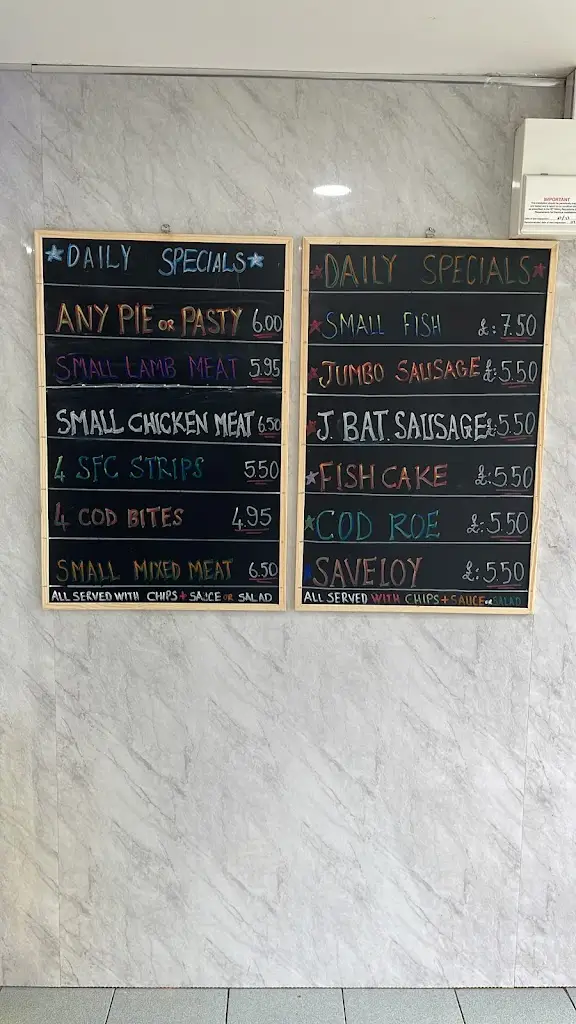 DAILY SPECIALS
ANY PIE OR PASTY 6.00
SMALL LAMB MEAT 5.95
SMALL CHICKEN MEAT 6.50
4 SFC STRIPS 5.50
4 COD BITES 4.95
SMALL MIXED MEAT 6.50
ALL SERVED WITH CHIPS + SAUCE OR SALAD
DAILY SPECIALS
SMALL FISH £:7.50
JUMBO SAUSAGE £:5.50
J. BAT. SAUSAGE £:5.50
FISH CAKE £:5.50
COD ROE £:5.50
SAVELOY £:5.50
ALL SERVED WITH CHIPS + SAUCE OR SALAD
IMPORTANT